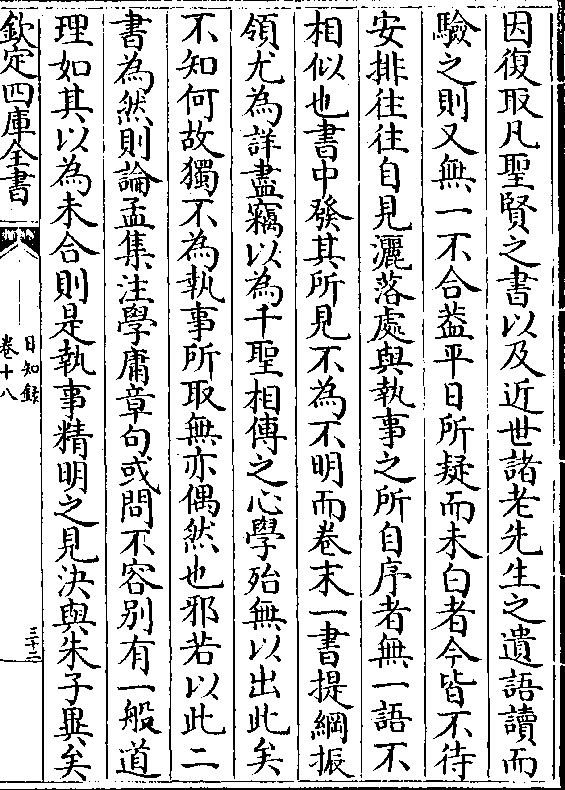 因復取凡聖賢之書以及近世諸老先生之遺語讀而
驗之則又無一不合葢平日所疑而未白者今皆不待
安排往往自見灑落處與執事之所自序者無一語不
相似也書中發其所見不為不明而卷末一書提綱振
領尤為詳盡竊以為千聖相傳之心學殆無以出此矣
不知何故獨不為執事所取無亦偶然也邪若以此二
書為然則論孟集注學庸章句或問不容别有一般道
理如其以為未合則是執事精明之見決與朱子異矣
欽定四庫全書
日知錄
卷十八
三十三